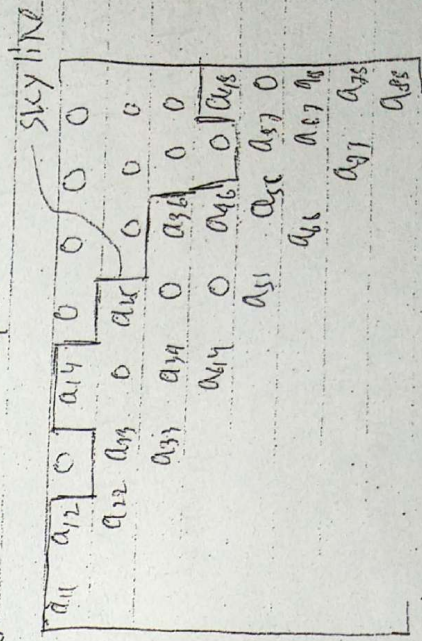 skyline
a11 a12 0 a14 0 0 0 0
a22 a33 0 a25 0 0 0
a33 a34 0 a36 0 0
0 a46 0 a48
a56 a57 0
a66 a67
a77 a78
a88